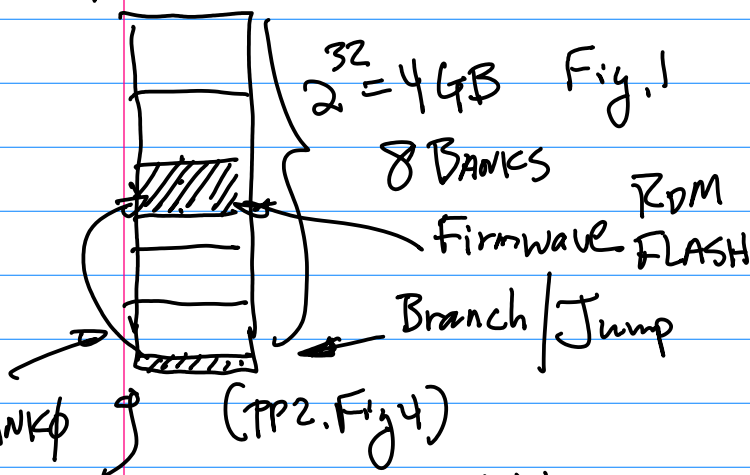 2^32 = 4 GB Fig.1
8 BANKS
ROM
Firmware FLASH
Branch / Jump
NKφ
(PP2. Fig 4)